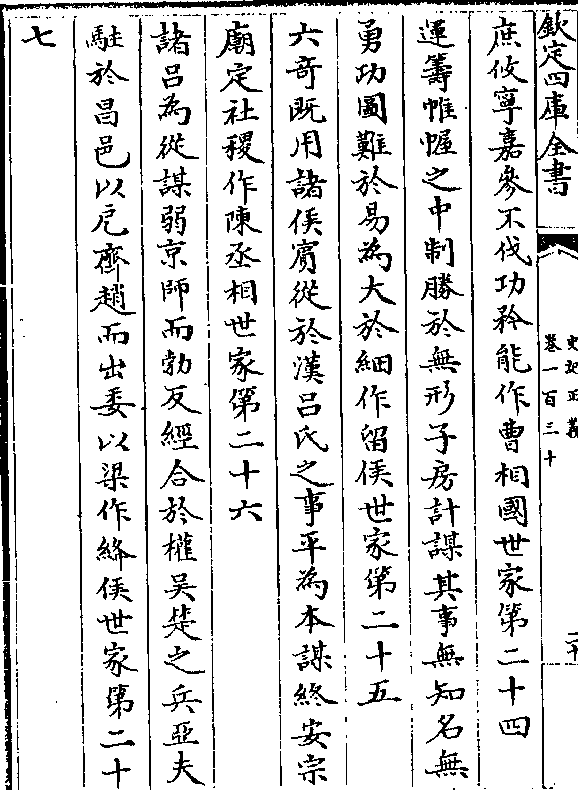 欽定四庫全書
史記正義
卷一百三十
二十
庶攸寧嘉參不伐功矜能作曹相國世家第二十四
運籌帷幄之中制勝於無形子房計謀其事無知名無
勇功圖難於易為大於細作留侯世家第二十五
六奇既用諸侯賔從於漢吕氏之事平為本謀終安宗
廟定社稷作陳丞相世家第二十六
諸吕為從謀弱京師而勃反經合於權吴楚之兵亞夫
駐於昌邑以戹齊趙而出委以梁作絳侯世家第二十
七